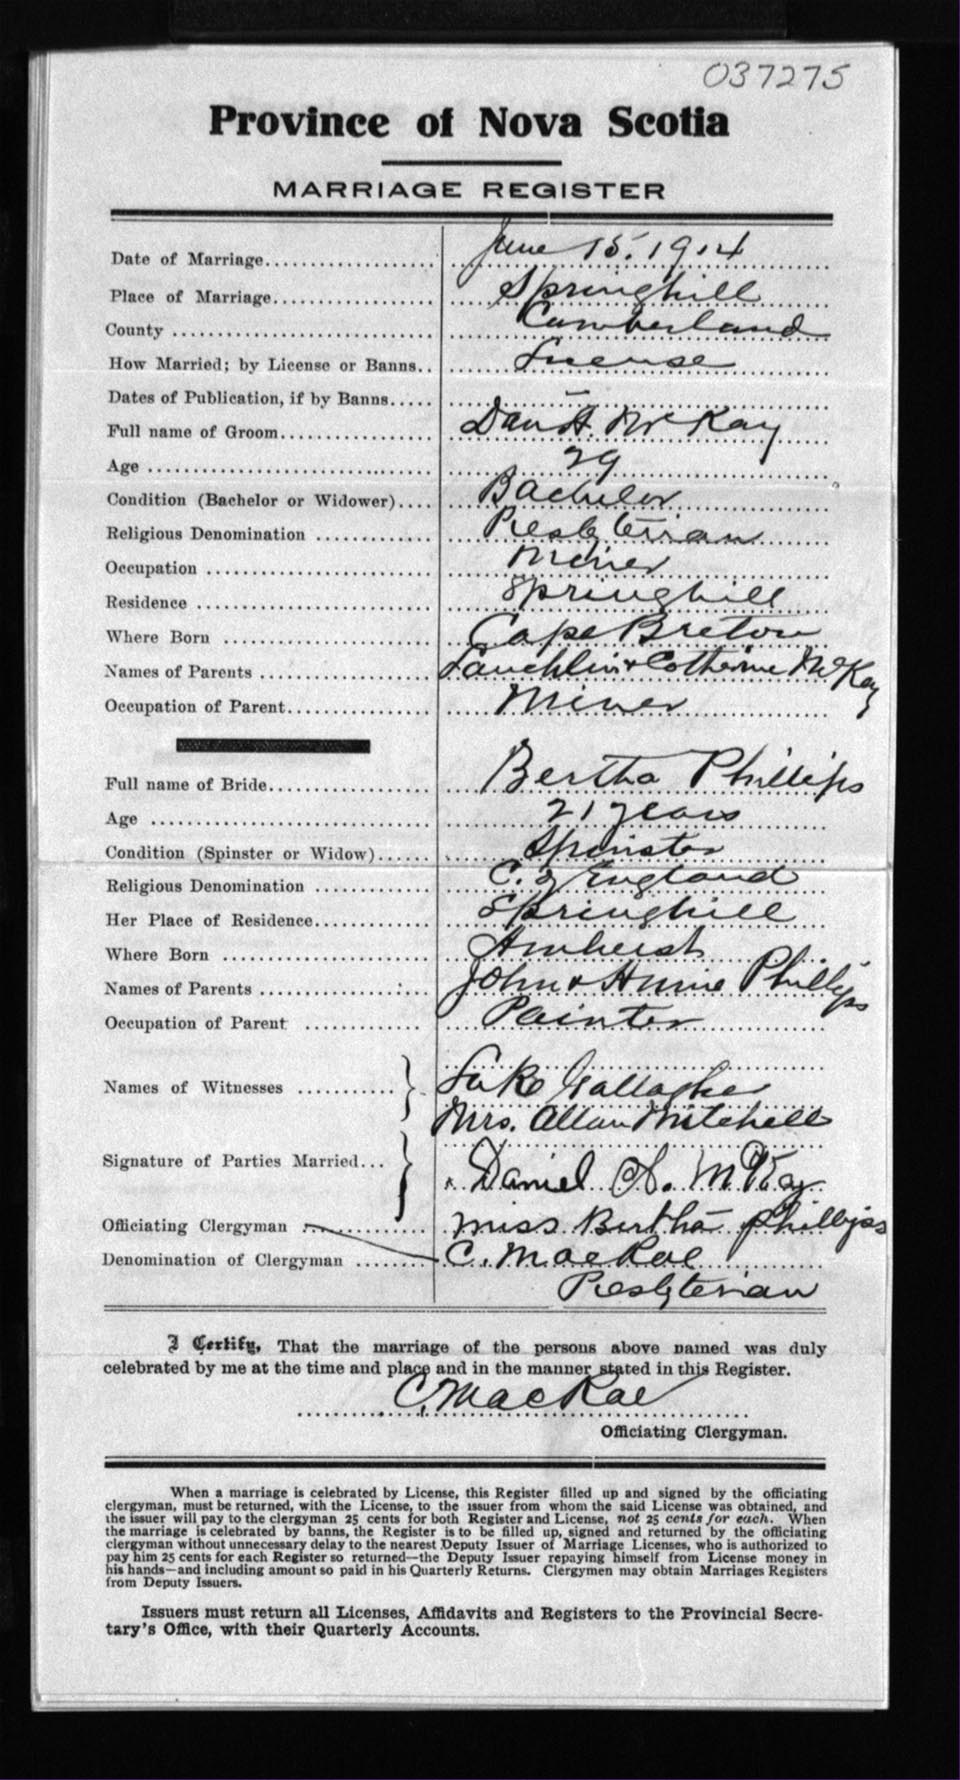 037275
Province of Nova Scotia
MARRIAGE REGISTER
Date of Marriage.................... June 15. 1914
Place of Marriage................... Springhill
County .............................. Cumberland
How Married; by License or Banns.. License
Dates of Publication, if by Banns..... –
Full name of Groom.................. Dan A. McKay
Age .............................. 29
Condition (Bachelor or Widower).... Bachelor
Religious Denomination ............. Presbyterian
Occupation ......................... Miner
Residence .......................... Springhill
Where Born ........................ Cape Breton
Names of Parents ................... Lauchlin & Catherine McKay
Occupation of Parent................ Miner
Full name of Bride................... Bertha Phillips
Age .............................. 21 years
Condition (Spinster or Widow)...... Spinster
Religious Denomination ............. C. of England
Her Place of Residence.............. Springhill
Where Born ........................ Amherst
Names of Parents ................... John & Annie Phillips
Occupation of Parent ............... Painter
Names of Witnesses ........... Gallagher
Mrs. Allan Mitchell
Signature of Parties Married... Daniel A. McKay
Officiating Clergyman ............ Miss Bertha Phillips
Denomination of Clergyman ........ C. MacRae
Presbyterian
I Certify, That the marriage of the persons above named was duly
celebrated by me at the time and place and in the manner stated in this Register.
C. MacRae
Officiating Clergyman.
When a marriage is celebrated by License, this Register filled up and signed by the officiating
clergyman, must be returned, with the License, to the issuer from whom the said License was obtained, and
the issuer will pay to the clergyman 25 cents for both Register and License, not 25 cents for each. When
the marriage is celebrated by banns, the Register is to be filled up, signed and returned by the officiating
clergyman without unnecessary delay to the nearest Deputy Issuer of Marriage Licenses, who is authorized to
pay him 25 cents for each Register so returned—the Deputy Issuer repaying himself from License money in
his hands—and including amount so paid in his Quarterly Returns. Clergymen may obtain Marriages Registers
from Deputy Issuers.
Issuers must return all Licenses, Affidavits and Registers to the Provincial Secre-
tary's Office, with their Quarterly Accounts.